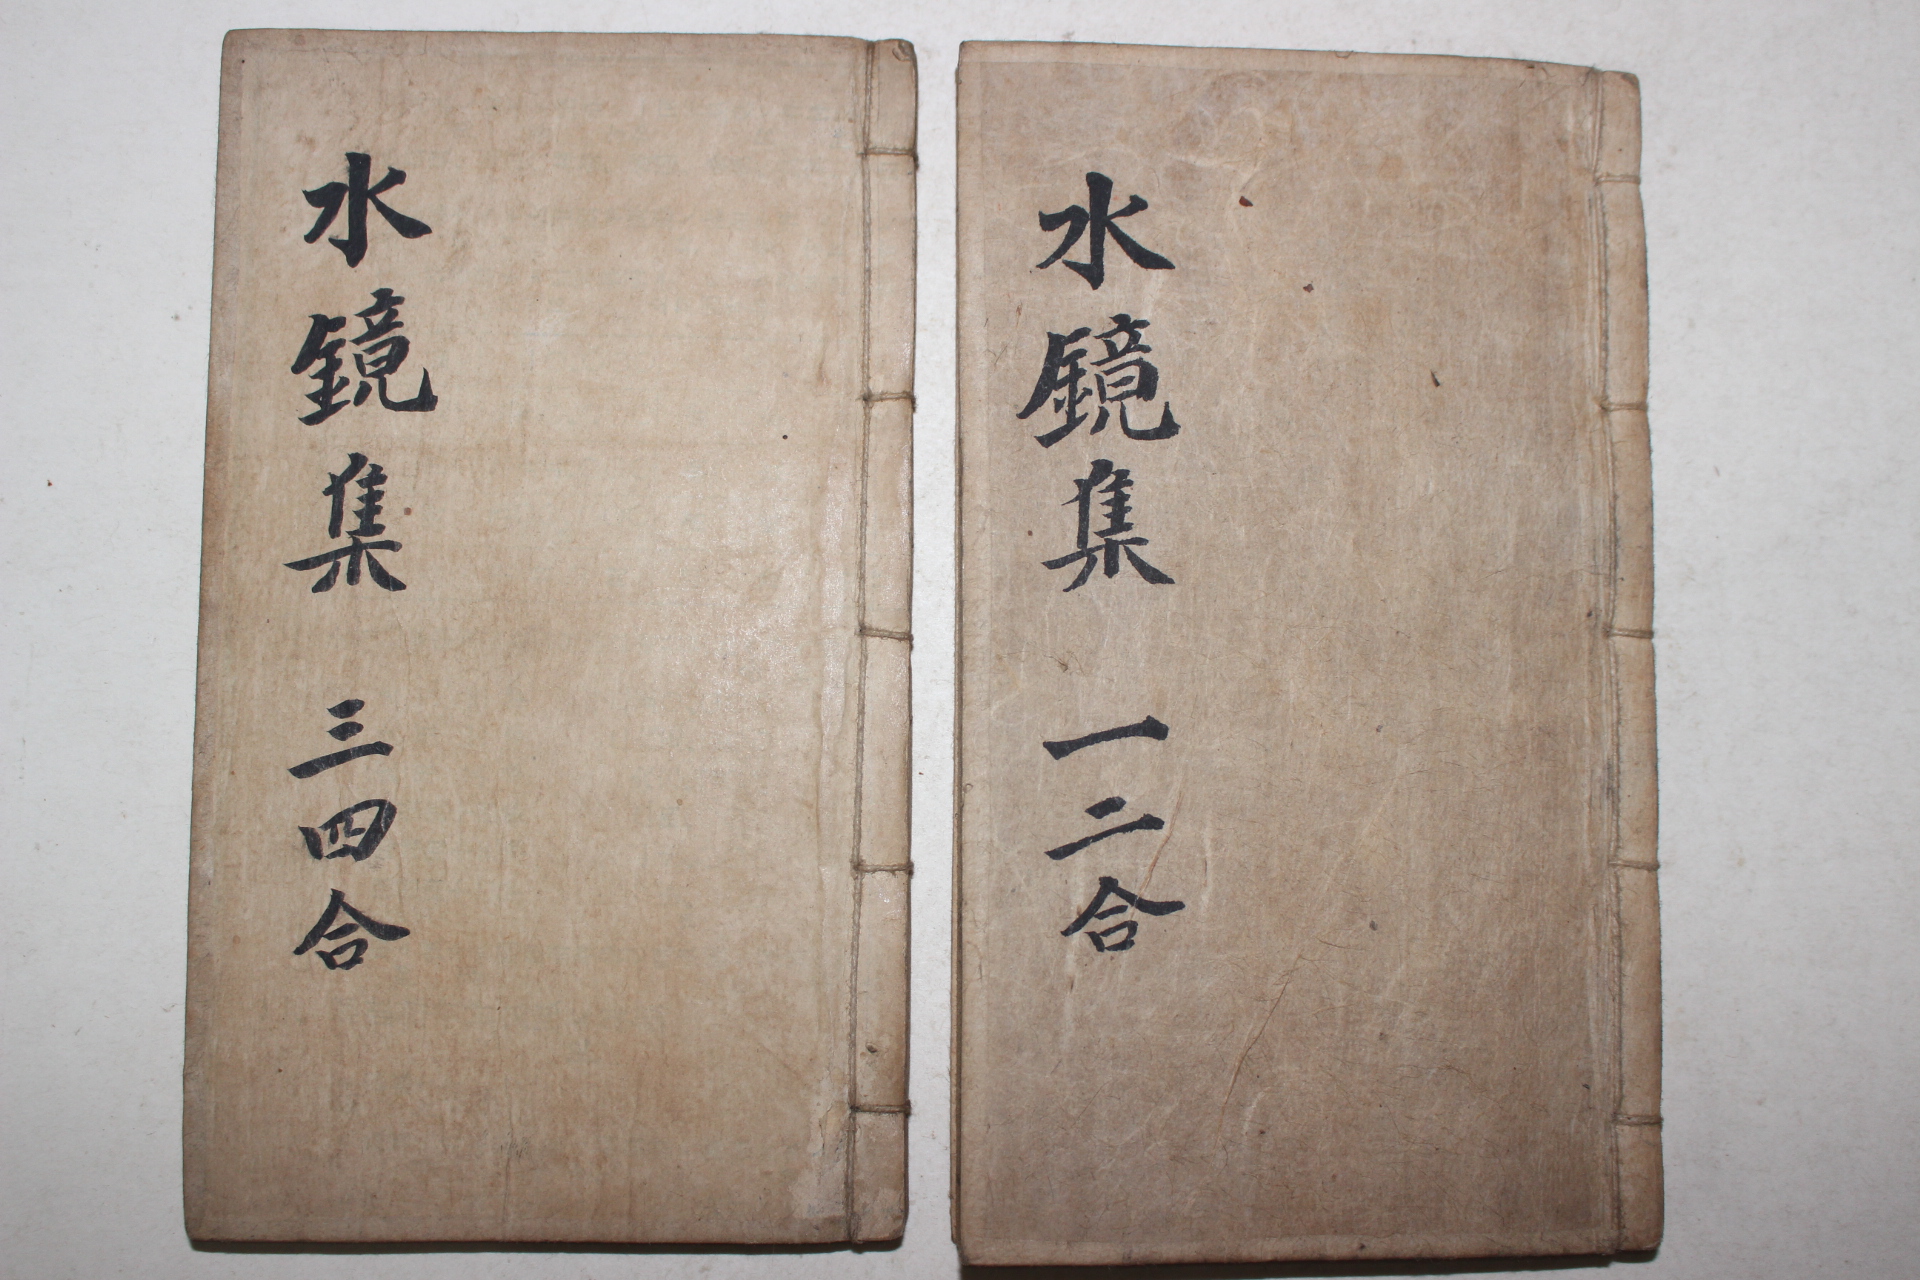 水鏡集 一二合
水鏡集 三四合